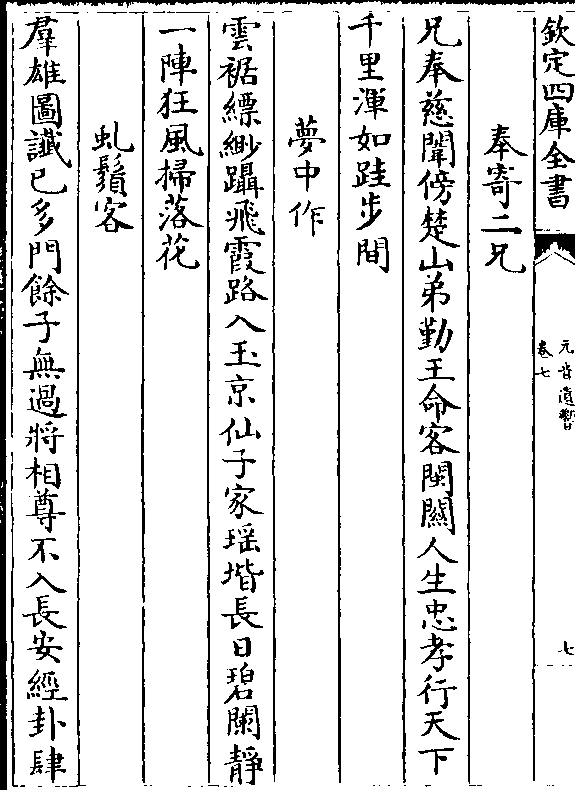 欽定四庫全書
元音遺響
卷七
七
奉寄二兄
兄奉慈闈傍楚山弟勤王命客閩關人生忠孝行天下
千里渾如跬步間
夢中作
雲裾縹緲躡飛霞路入玉京仙子家瑶堦長日碧闌靜
一陣狂風掃落花
虬鬚客
羣雄圖讖已多門餘子無過將相尊不入長安經卦肆